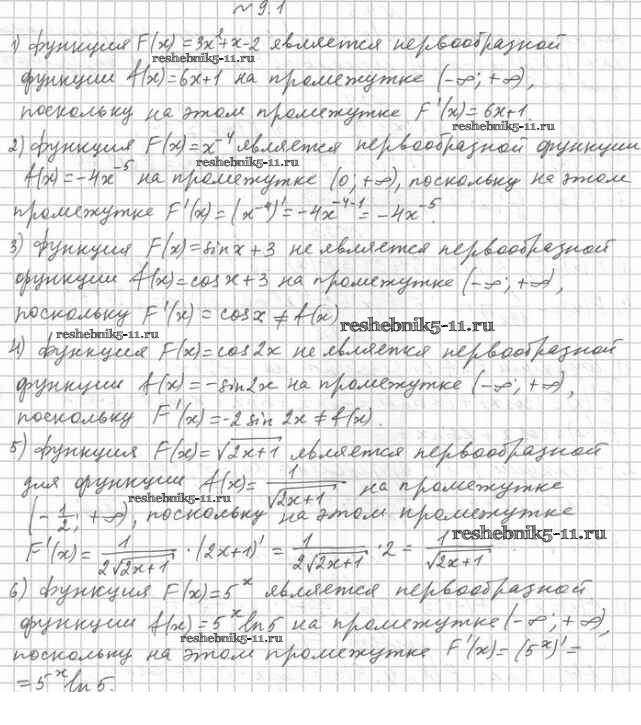 № 9.1
1) функция F(x) = 3x²+x-2 является первообразной
reshebnik5-11.ru
функции f(x) = 6x+1 на промежутке (-∞; +∞),
поскольку на этом промежутке F'(x) = 6x+1.
reshebnik5-11.ru
2) функция F(x) = x⁻⁴ является первообразной функции
reshebnik5-11.ru
f(x) = -4x⁻⁵ на промежутке (0; +∞), поскольку на этом
промежутке F'(x) = (x⁻⁴)' = -4x⁻⁴⁻¹ = -4x⁻⁵.
3) функция F(x) = sinx + 3 не является первообразной
функции f(x) = cosx + 3 на промежутке (-∞; +∞),
поскольку F'(x) = cosx ≠ f(x)
reshebnik5-11.ru reshebnik5-11.ru
4) функция F(x) = cos2x не является первообразной
функции f(x) = -sin2x на промежутке (-∞; +∞),
поскольку F'(x) = -2 sin 2x ≠ f(x).
5) функция F(x) = √(2x+1) является первообразной
для функции f(x) = 1/√(2x+1) на промежутке
reshebnik5-11.ru
(-1/2; +∞), поскольку на этом промежутке
reshebnik5-11.ru
F'(x) = 1/(2√(2x+1)) · (2x+1)' = 1/(2√(2x+1)) · 2 = 1/√(2x+1)
6) функция F(x) = 5ˣ является первообразной
функции f(x) = 5ˣ ln5 на промежутке (-∞; +∞),
reshebnik5-11.ru
поскольку на этом промежутке F'(x) = (5ˣ)' =
= 5ˣ ln5.